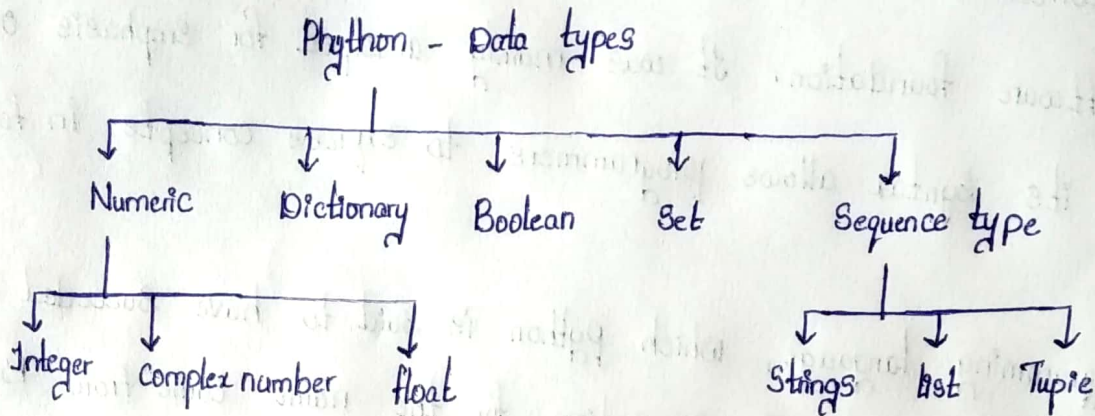 Phython - Data types
Numeric Dictionary Boolean Set Sequence type
Integer Complex number float Strings list Tupie